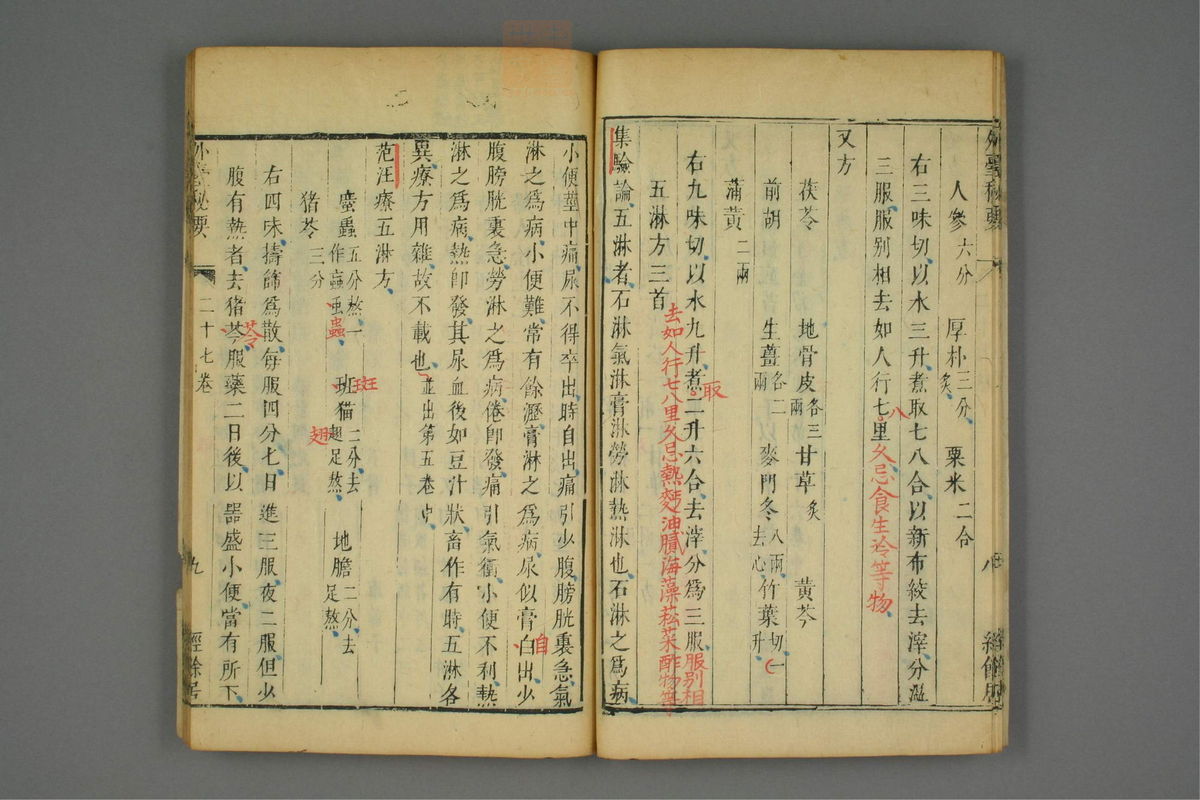 外臺秘要
人參六分 厚朴三分炙 粟米二合
右三味切以水三升煮取七八合以新布絞去滓分溫
三服服別相去如人行七里久忌食生冷等物
八
又方
茯苓 地骨皮各三兩 甘草炙 黃芩
前胡 生薑各二兩 麥門冬八兩去心 竹葉切一升
蒲黃二兩
右九味切以水九升煮二升六合去滓分為三服服別相
取
去如人行七八里久忌熱麵油膩海藻菘菜酢物等
五淋方三首
集驗論五淋者石淋氣淋膏淋勞淋熱淋也石淋之為病
八
經餘居
小便莖中痛尿不得卒出時自出痛引少腹膀胱裏急氣
淋之為病小便難常有餘瀝膏淋之為病尿似膏白出少
自
腹膀胱裏急勞淋之為病倦即發痛引氣衝小便不利熱
淋之為病熱即發其尿血後如豆汁狀畜作有時五淋各
異療方用雜故不載也並出第五卷中
范汪療五淋方
䗪蟲五分熬一作䗪虫 班猫二分去翅足熬 地膽二分去足熬
蟲
斑
翅
猪苓三分
右四味擣篩為散每服四分匕日進三服夜二服但少
腹有熱者去猪苓服藥二日後以器盛小便當有所下
苓
外臺秘要
二十七卷
九
經餘居